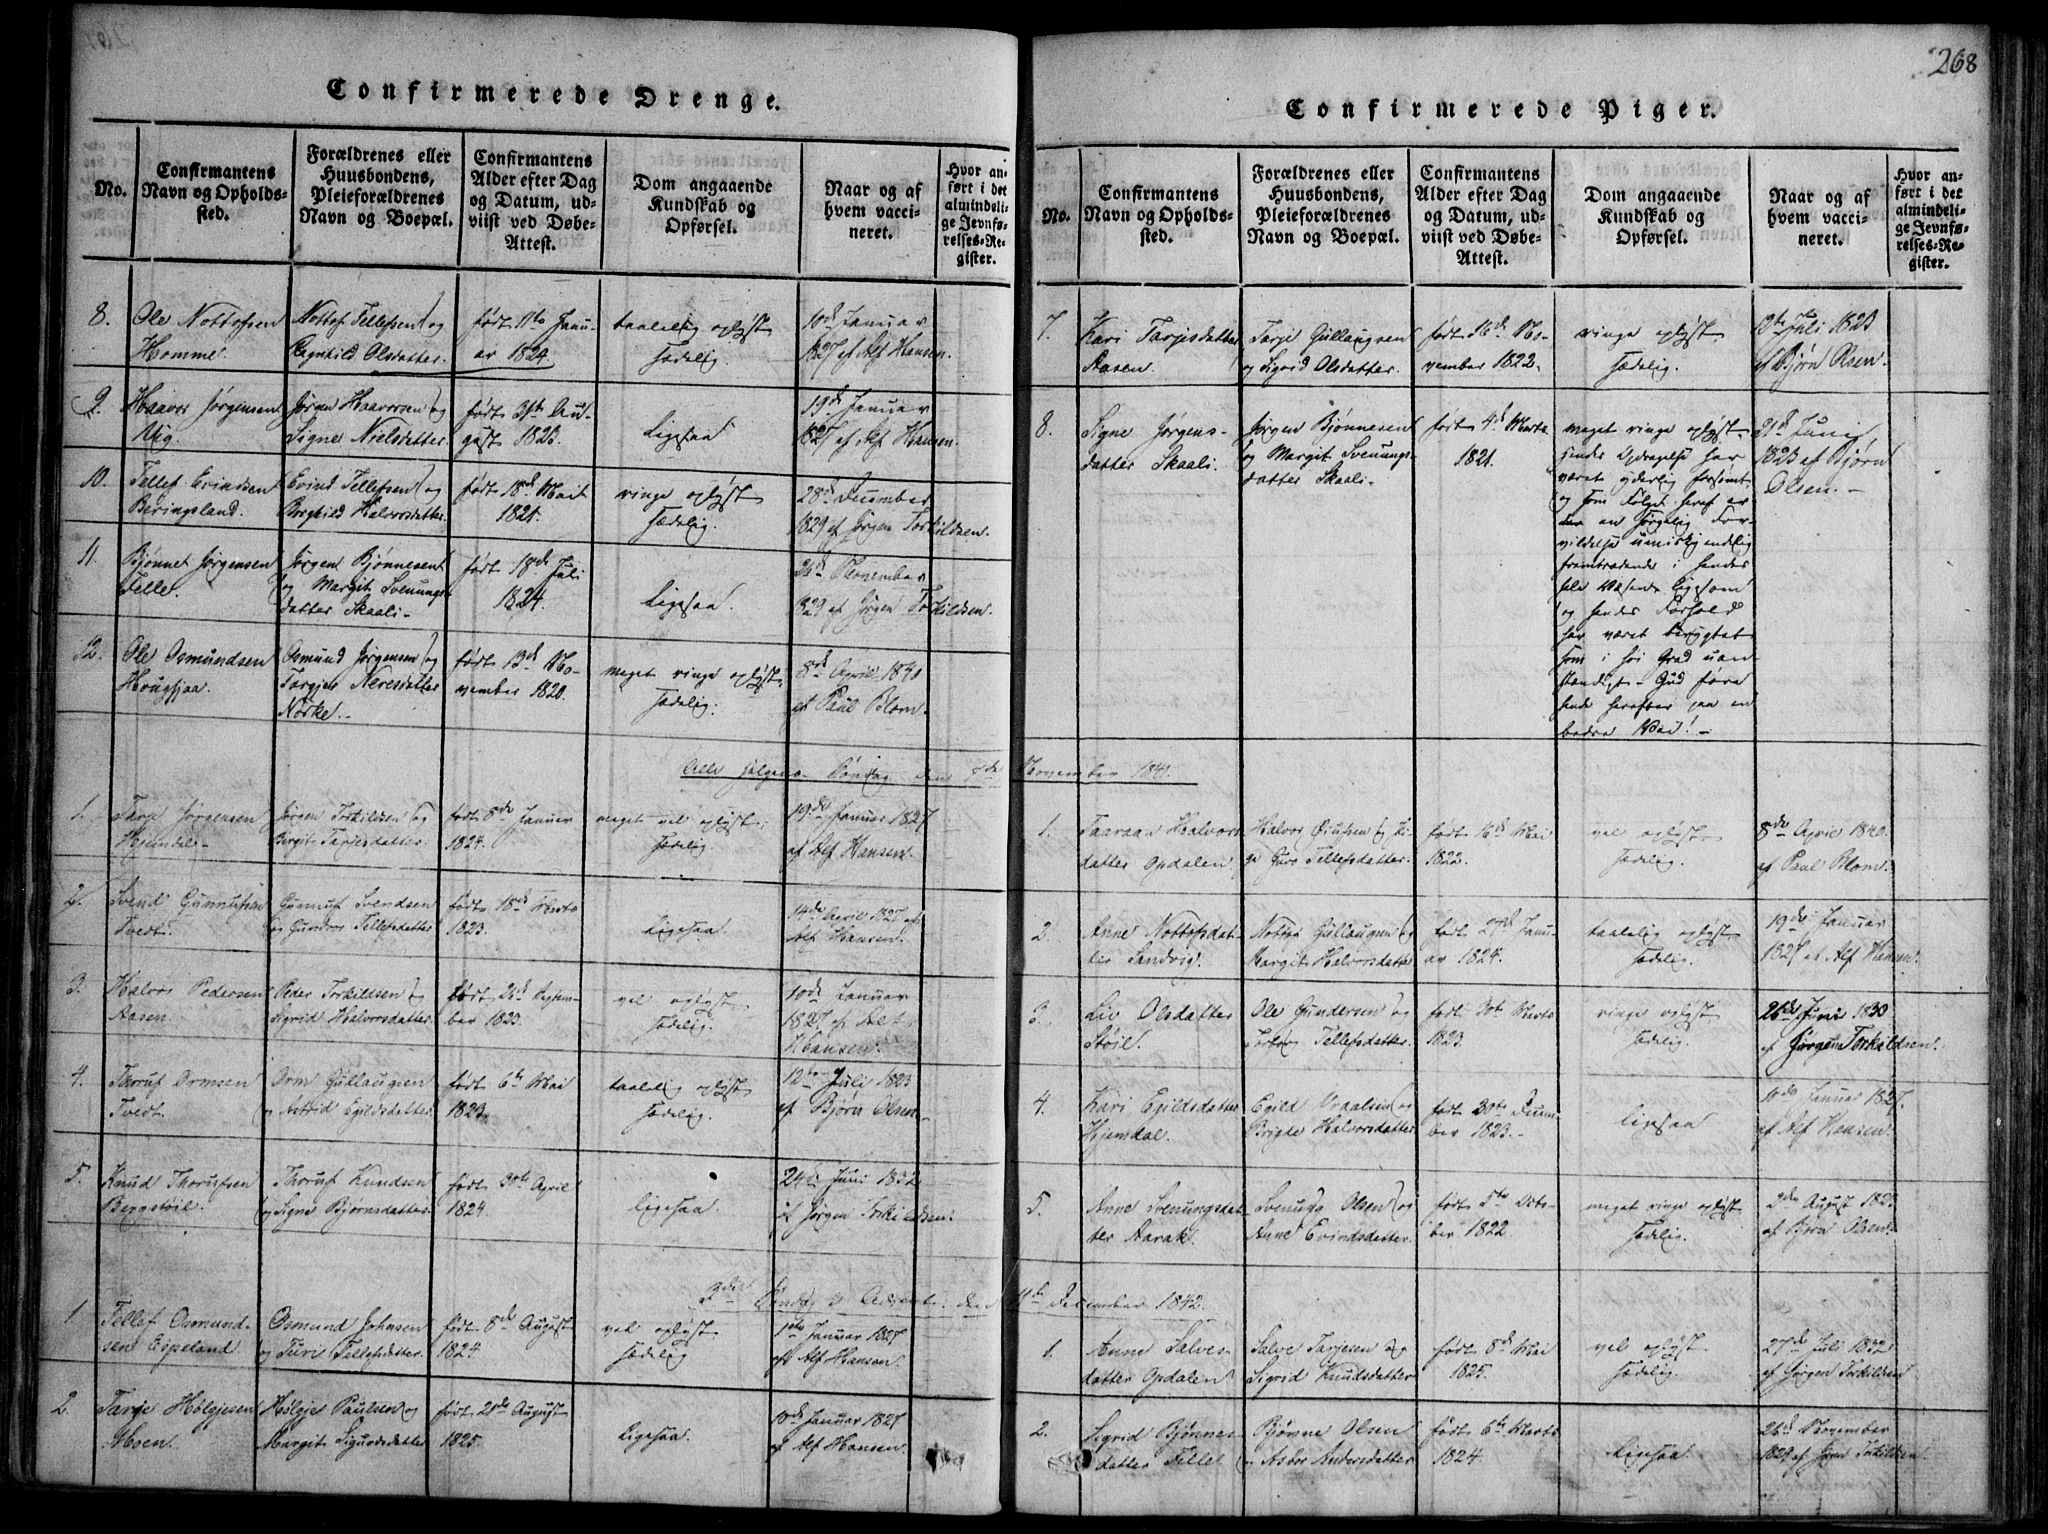 268
Confirmerede Drenge.
No.
Confirmantens Navn og Opholdssted.
Forældrenes eller Huusbondens, Pleieforældrenes Navn og Boepæl.
Confirmantens Alder efter Dag og Datum, udviist ved Døbe-Attest.
Dom angaaende Kundskab og Opførsel.
Naar og af hvem vaccineret.
Hvor anført i det almindelige Jevnførelses-Register.
8. Ole Nottofsen Homme.
Nottof Tellefsen og Ragnhild Olsdatter.
født 11te Januar 1824.
taalelig oplyst sædelig.
10de Januar 1827 af Alf Hansen.
9. Haavor Jørgensen Vig.
Jørgen Haavorsen og Signe Nielsdatter.
født 31te August 1823.
Ligesaa
19de Januar 1827 af Alf Hansen.
10. Tellef Evindsen Beringsland.
Evind Tellefsen og Borghild Halvorsdatter.
født 18de Mait 1821.
ringe oplyst sædelig.
28de December 1829 af Jørgen Torkildsen.
11. Bjønnet Jørgensen Telle.
Jørgen Bjønnesen og Margit Svenungsdatter Skaali.
født 18de Juli 1824.
Ligesaa.
November 1829 af Jørgen Torkildsen.
12. Ole Osmundsen
Osmund Jørgensen og Torgjer Neresdatter
født 13de November 1820.
meget ringe oplyst, sædelig.
8de April 1840 af Paul Blom.
Alle Helgens Søndag den 7de November 1841.
1. Tarje Jørgensen Hjemdal.
Jørgen Torkildsen og Birgit Tarjesdatter.
født 8de Januar 1824.
meget vel oplyst, sædelig.
19de Januar 1827 af Alf Hansen.
2. Svend Gunnufsen Tvedt.
Gunnuf Svendsen og Gundvor Tellefsdatter
født 18de Marts 1823.
Ligesaa.
14de April 1827 af Alf Hansen.
3. Halvor Pedersen Aasen.
Peder Torkildsen og Sigrid Halvorsdatter.
født 26de September 1823.
vel oplyst sædelig.
10de Januar 1827 af Alf Hansen.
4. Thoruf Ormsen Tvedt.
Orm Gullaugsen og Astrid Egildsdatter.
født 6te Mai 1823.
taalelig oplyst sædelig.
12te Juli 1823 af Bjørn Olsen.
5. Knud Thorufsen
Thoruf Knudsen og Signe Bjørnsdatter.
født 30te April 1824.
Ligesaa.
24de Juni 1832 af Jørgen Torkildsen.
3die Søndag i Advent, den 11te December 1842.
1. Tellef Osmundsen Espeland.
Osmund Johnsen og Turi Tellefsdatter.
født 8de August 1824.
vel oplyst sædelig
Januar 1827 af Alf Hansen.
2. Tarje Helgjesen Moen.
Helgjer Paulsen og Margit Sigurdsdatter
født 21de August 1825.
Ligesaa.
10de Januar 1827 af Alf Hansen.
Confirmerede Piger.
No.
Confirmantens Navn og Opholdssted.
Forældrenes eller Huusbondens, Pleieforældrenes Navn og Boepæl.
Confirmantens Alder efter Dag og Datum, udviist ved Døbe-Attest.
Dom angaaende Kundskab og Opførsel.
Naar og af hvem vaccineret.
Hvor anført i det almindelige Jevnførelses-Register.
7. Kari Tarjesdatter Aasen.
Tarje Gullaugsen og Sigrid Olsdatter.
født 16de November 1822.
ringe oplyst. sædelig.
Juli 1823 af Bjørn Olsen.
8. Signe Jørgensdatter Skaali.
Jørgen Bjønnesen og Margit Svenungsdatter Skaali.
født 4de Marts 1821.
meget ringe oplyst. hendes Opdragelse har været yderlig forsømt, og som Følge heraf er der en sørgelig Forvildelse umiskjendelig fremtrædende i hendes hele Væsende ligesom og hendes Forhold har været berygtet som i høi Grad uanstændigt. Gud føre hende herefter paa en bedre Vei! -
21de Juni 1823 af Bjørn Olsen. -
1. Taaraan Halvorsdatter Opdalen.
Halvor Tellefsdatter.
født 16de Mai 1822.
vel oplyst sædelig.
8de April 1840 af Paul Blom.
2. Anne Nottofsdatter Sandvig.
Nottof Gullaugsen og Margit Halvorsdatter
født 27de Januar 1824.
taalelig oplyst sædelig.
19de Januar 1827 af Alf Hansen.
3. Liv Olsdatter Støil.
Ole Gundersen og Tellefsdatter.
født 30te Marts 1823.
ringe oplyst sædelig.
26de Juni 1830 af Jørgen Torkildsen.
4. Kari Egildsdatter Hjemdal.
Egild Vraalsen og Brigde Halvorsdatter
født 30te December 1823.
Ligesaa
10de Januar 1827. af Alf Hansen.
5. Anne Svenungsdatter Aarak.
Svenung Olsen og Anne Evindsdatter.
født 5te October 1822
meget ringe oplyst sædelig.
2den August 1823 af Bjørn Olsen.
1. Anne Salvesdatter Opdalen
Salve Tarjesen og Sigrid Knudsdatter
født 8de Mai 1825.
vel oplyst sædelig.
27de Juli 1832 af Jørgen Torkildsen
2. Sigrid Bjønnesdatter Telle
Bjønne Olsen og Asber Andersdatter
født 6te Marts 1824
Ligesaa.
26de November 1829 af Jørgen Torkildsen.